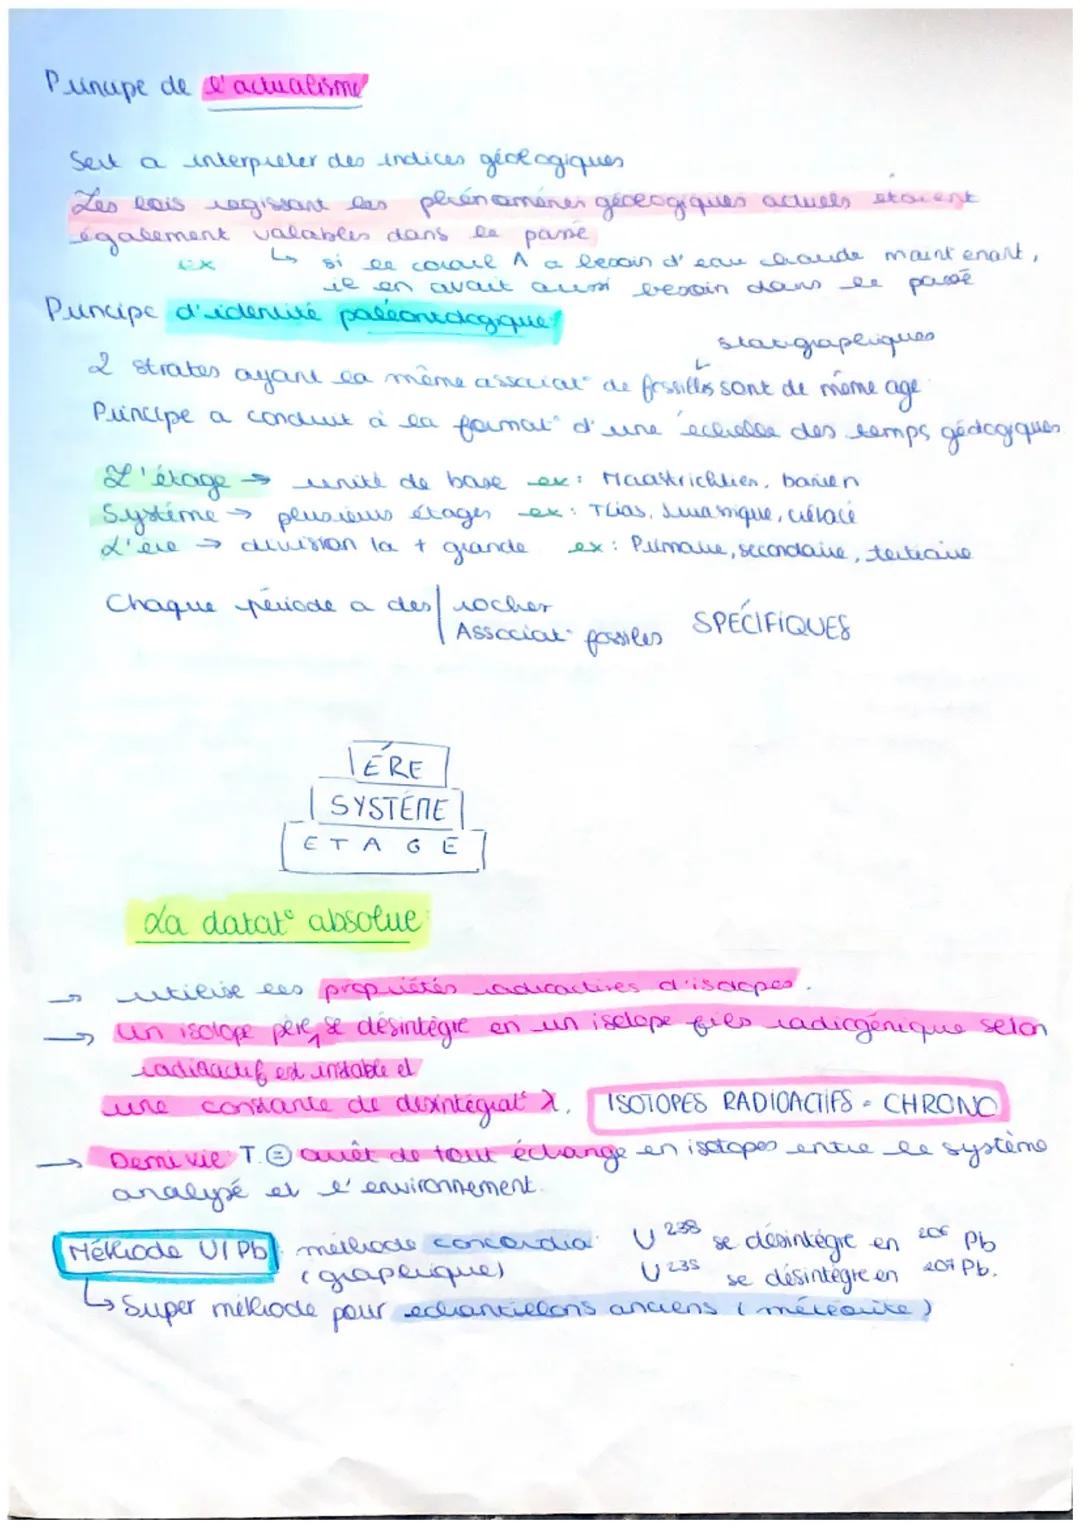 Principe de l'actualisme
Sert a interpreter des indices géologiques
Les lois regissant les phénomènes géologiques actuels étaient
également valables dans le passé
ex ↳ si le corail A a besoin d'eau chaude maintenant,
il en avait aussi besoin dans le passé
Principe d'identité paléontologique:
stratigraphiques
2 strates ayant la même associat° de fossiles sont de même age
Principe a conduit à la format° d'une echelle des temps géologiques
L'étage → unité de base ex: Maastrichtien,
Système → plusieurs étages ex: Trias, Jurassique, crétacé
L'ère → division la + grande ex: Primaire, secondaire, tertiaire
Chaque période a des rocher
Associat° fossiles SPÉCIFIQUES
ÉRE
SYSTÉME
ETAGE
La datat° absolue:
→ utilise les propriétés radioactives d'isotopes.
→ un isotope père, se désintègre en un isotope fils radiogénique selon
radioactif est instable et
une constante de désintégrat° λ. ISOTOPES RADIOACTIFS = CHRONO
→ Demi vie T. = arrêt de tout échange en isotopes entre le système
analysé et l'environnement.
Méthode U/Pb méthode concordia: U 238 se désintègre en 206 Pb
(graphique) U 235 se désintègre en 207 Pb.
↳ Super méthode pour echantillons anciens (météorite)